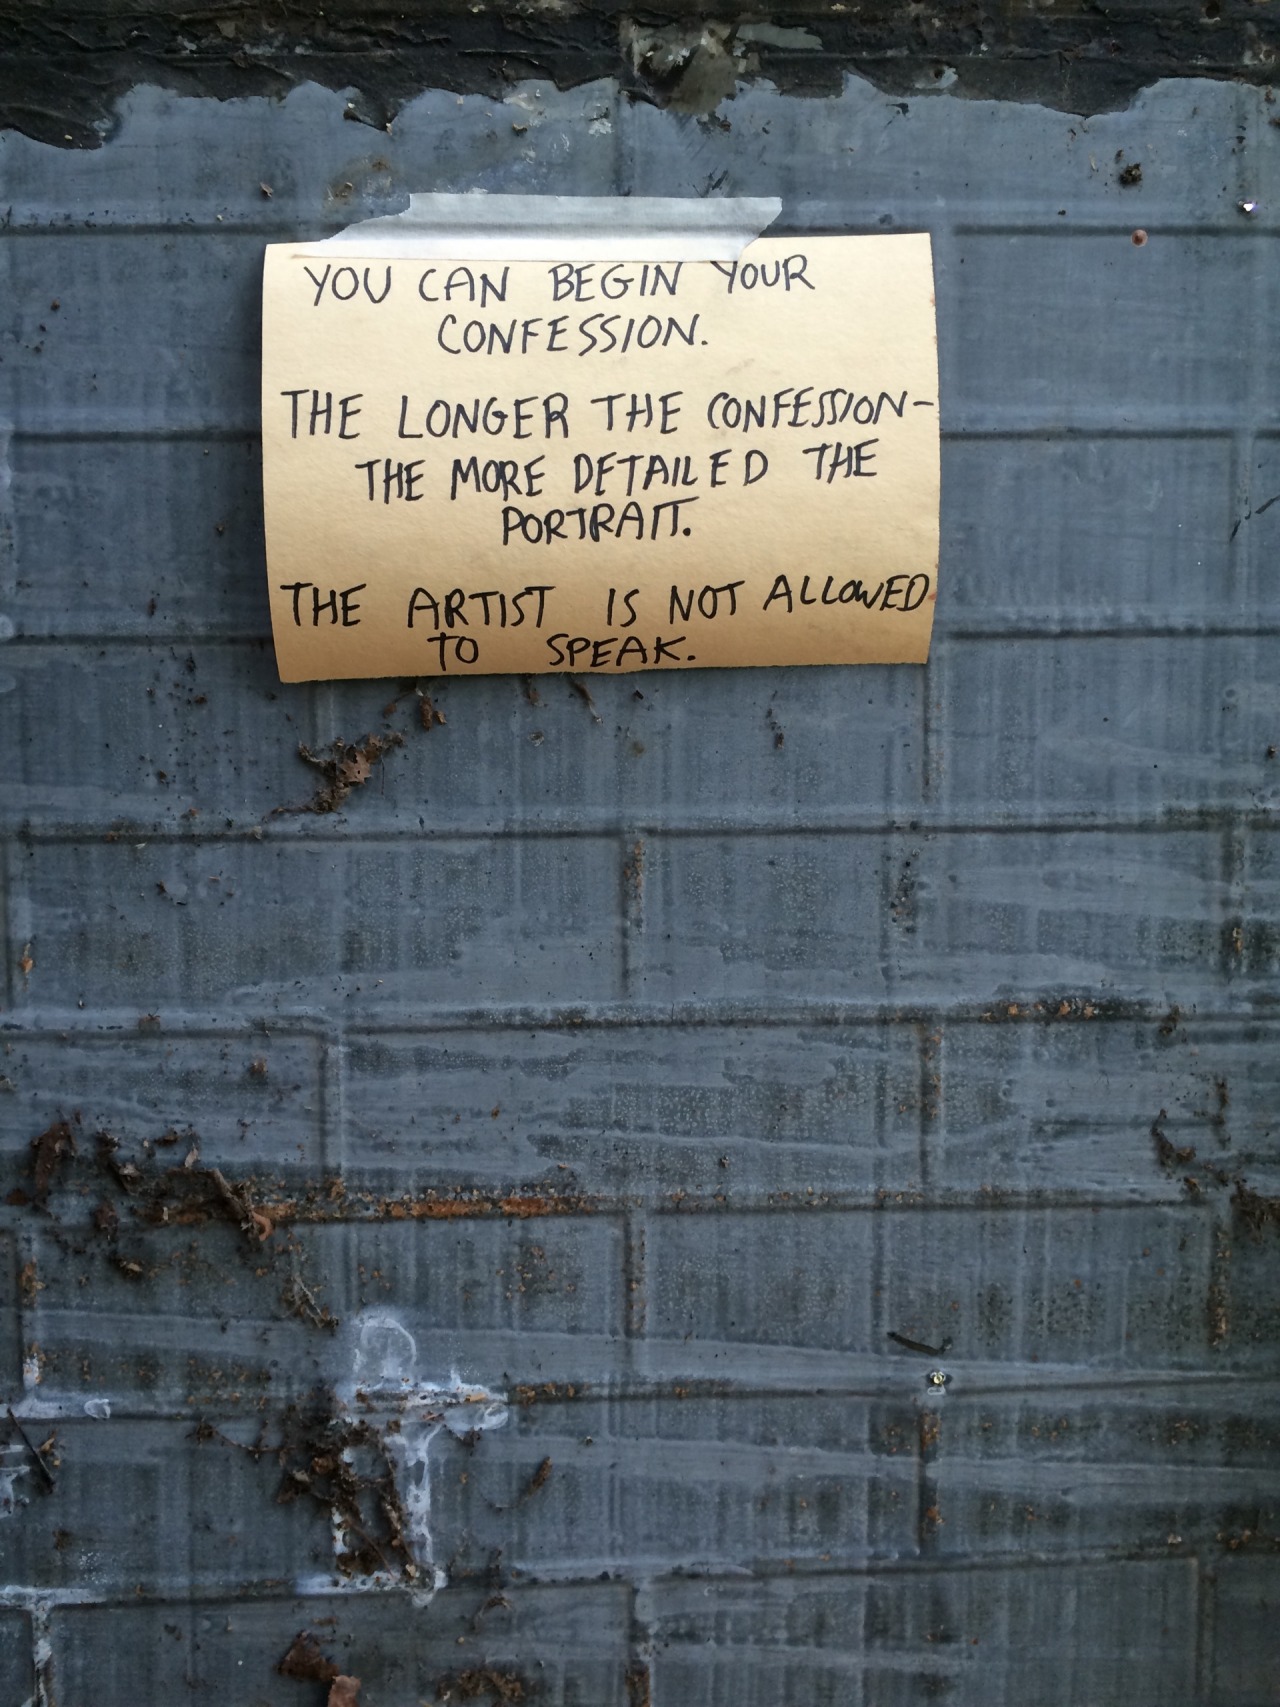 YOU CAN BEGIN YOUR
CONFESSION.
THE LONGER THE CONFESSION-
THE MORE DETAILED THE
PORTRAIT.
THE ARTIST IS NOT ALLOWED
TO SPEAK.